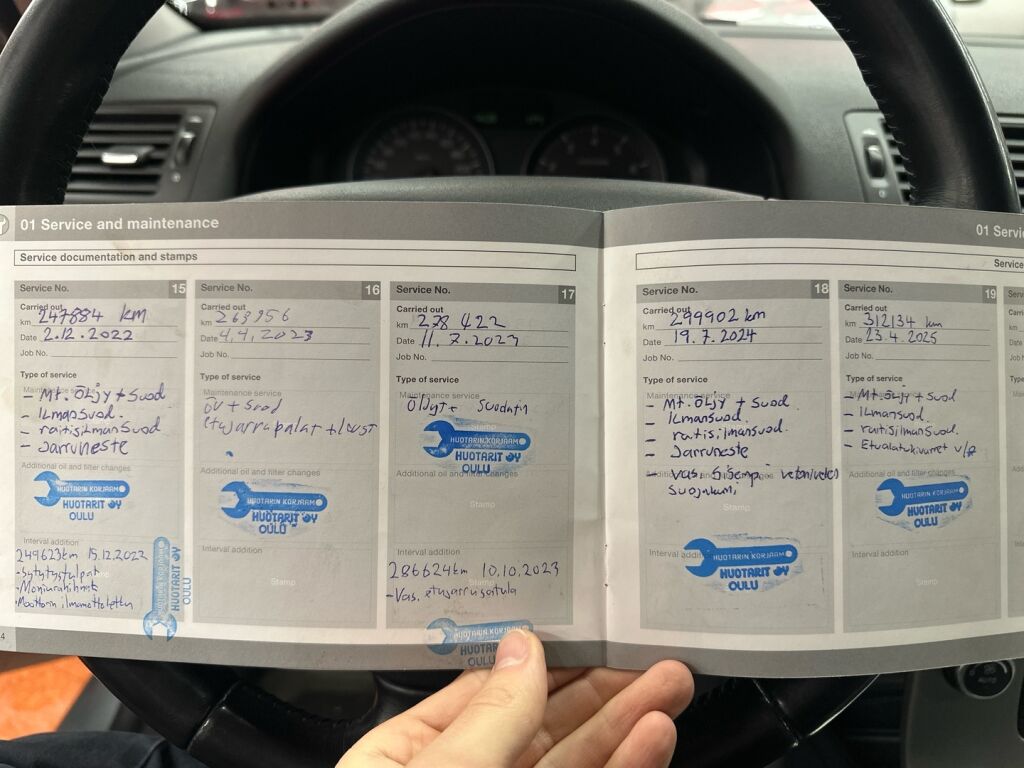 01 Service and maintenance
Service documentation and stamps
Service No. 15
Carried out
km 247884 km
Date 2.12.2022
Job No.
Type of service
Maintenance service
- Mt. Öljy + Suod.
- Ilmansuod.
- raitisilmansuod
- Jarruneste
Additional oil and filter changes
HUOTARIN KORJAAMO
HUOTARIT OY
OULU
Interval addition
249623km 15.12.2022
- Sytytystulpat
- Moottorin ilmanottoletku
HUOTARIN KORJAAMO
HUOTARIT OY
OULU
4
Service No. 16
Carried out
km 263956
Date 4.4.2023
Job No.
Type of service
Maintenance service
öv + suod
etujarrupalat +
Additional oil and filter changes
HUOTARIN KORJAAMO
HUOTARIT OY
OULU
Interval addition
Stamp
Service No. 17
Carried out
km 278 422
Date 11.7.2023
Job No.
Type of service
Maintenance service
Öljyt + suodatin
Stamp
HUOTARIN KORJAAMO
HUOTARIT OY
OULU
Additional oil and filter changes
Stamp
Interval addition
286624km 10.10.2023
- Vas. etujarrusatula
HUOTARIN KORJAAMO
OULU
01 Servi
Service
Service No. 18
Carried out
km 299902 km
Date 19.7.2024
Job No.
Type of service
Maintenance service
- Mt. Öljy + Suod.
- Ilmansuod.
- raitisilmansuod.
- Jarruneste
Additional oil and filter changes
- Vas. sisempi vetonivelen
suojakumi
Stamp
Interval addition
HUOTARIN KORJAAMO
HUOTARIT OY
OULU
Service No. 19
Carried out
km 312134 km
Date 23.4.2025
Job No.
Type of service
Maintenance service
- Mt. Öljy + Suod
- Ilmansuod.
- raitisilmansuod.
- Etualatukivarret v/o
Additional oil and filter changes
HUOTARIN KORJAAMO
HUOTARIT OY
OULU
Interval addition
Stamp